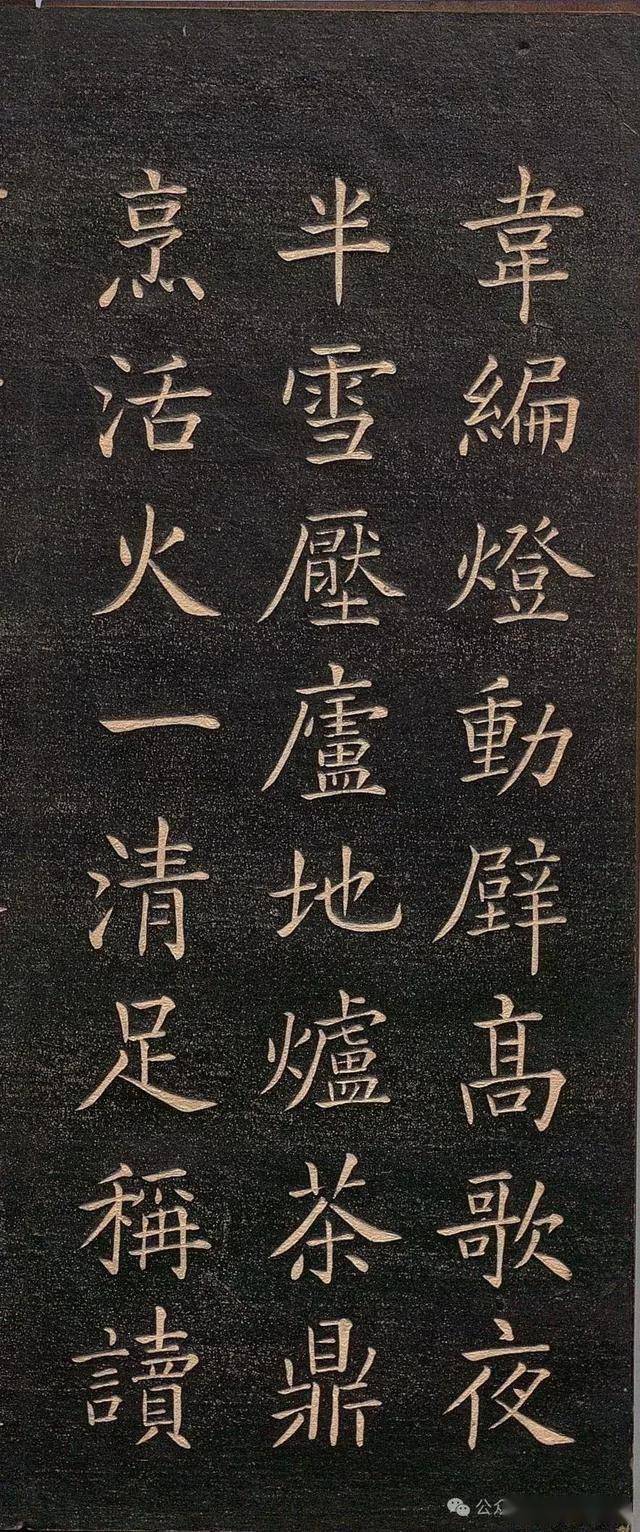 韋編燈動壁高歌夜
半雪壓廬地爐茶鼎
烹活火一清足稱讀
公众